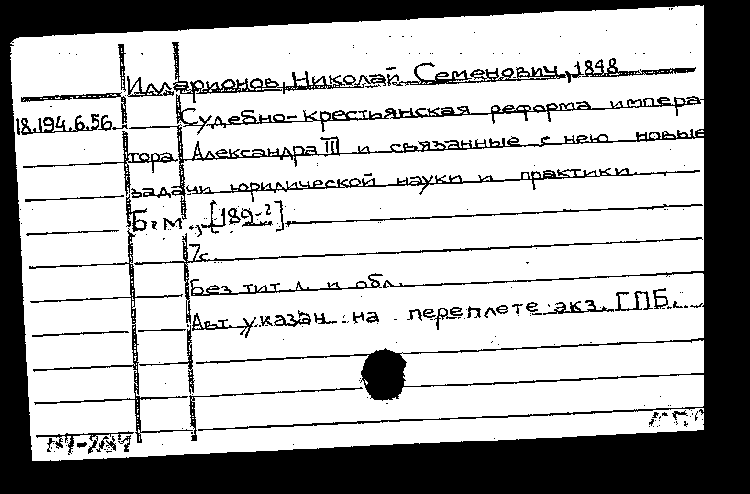 Илларионов, Николай Семенович, 1898
18.194.6.56. Судебно-крестьянская реформа импера
тора Александра III и связанные с нею новые
задачи юридической науки и практики.
Б. м., [189-?].
7с.
Без тит. л. и обл.
Авт. указан на переплете экз. ГПБ.